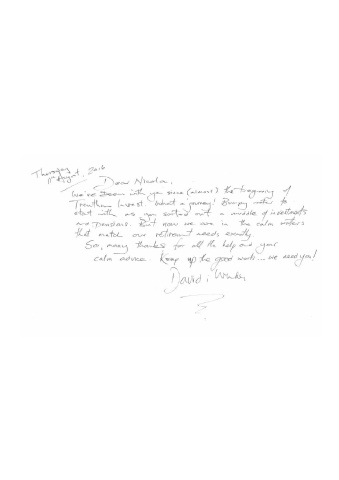 Thursday
11th August, 2016
Dear Nicola,
We've been with you since (almost) the beginning of
Trentham Invest. What a journey! Bumpy water to
start with as you sorted out a muddle of investments
and pensions. But now we are in the calm waters
that match our retirement needs exactly.
So, many thanks for all the help and your
calm advice. Keep up the good work... we need you!
David,